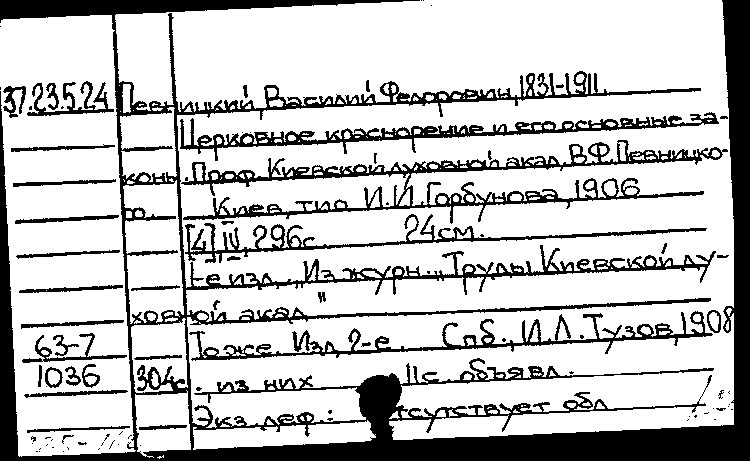 37.23.5.24 Певницкий, Василий Федорович, 1831-1911.
Церковное красноречие и его основные за-
коны. Проф. Киевской духовной акад. В.Ф. Певницко-
го. Киев, тип. И.И. Горбунова, 1906
[4], IV, 296 с. 24 см.
1-е изд. "Из журн. "Труды Киевской ду-
ховной акад."
63-7 То же. Изд. 2-е. Спб., И.Л. Тузов, 1908
1036 304 с., из них 11 с. объявл.
Экз. деф.: отсутствует обл.